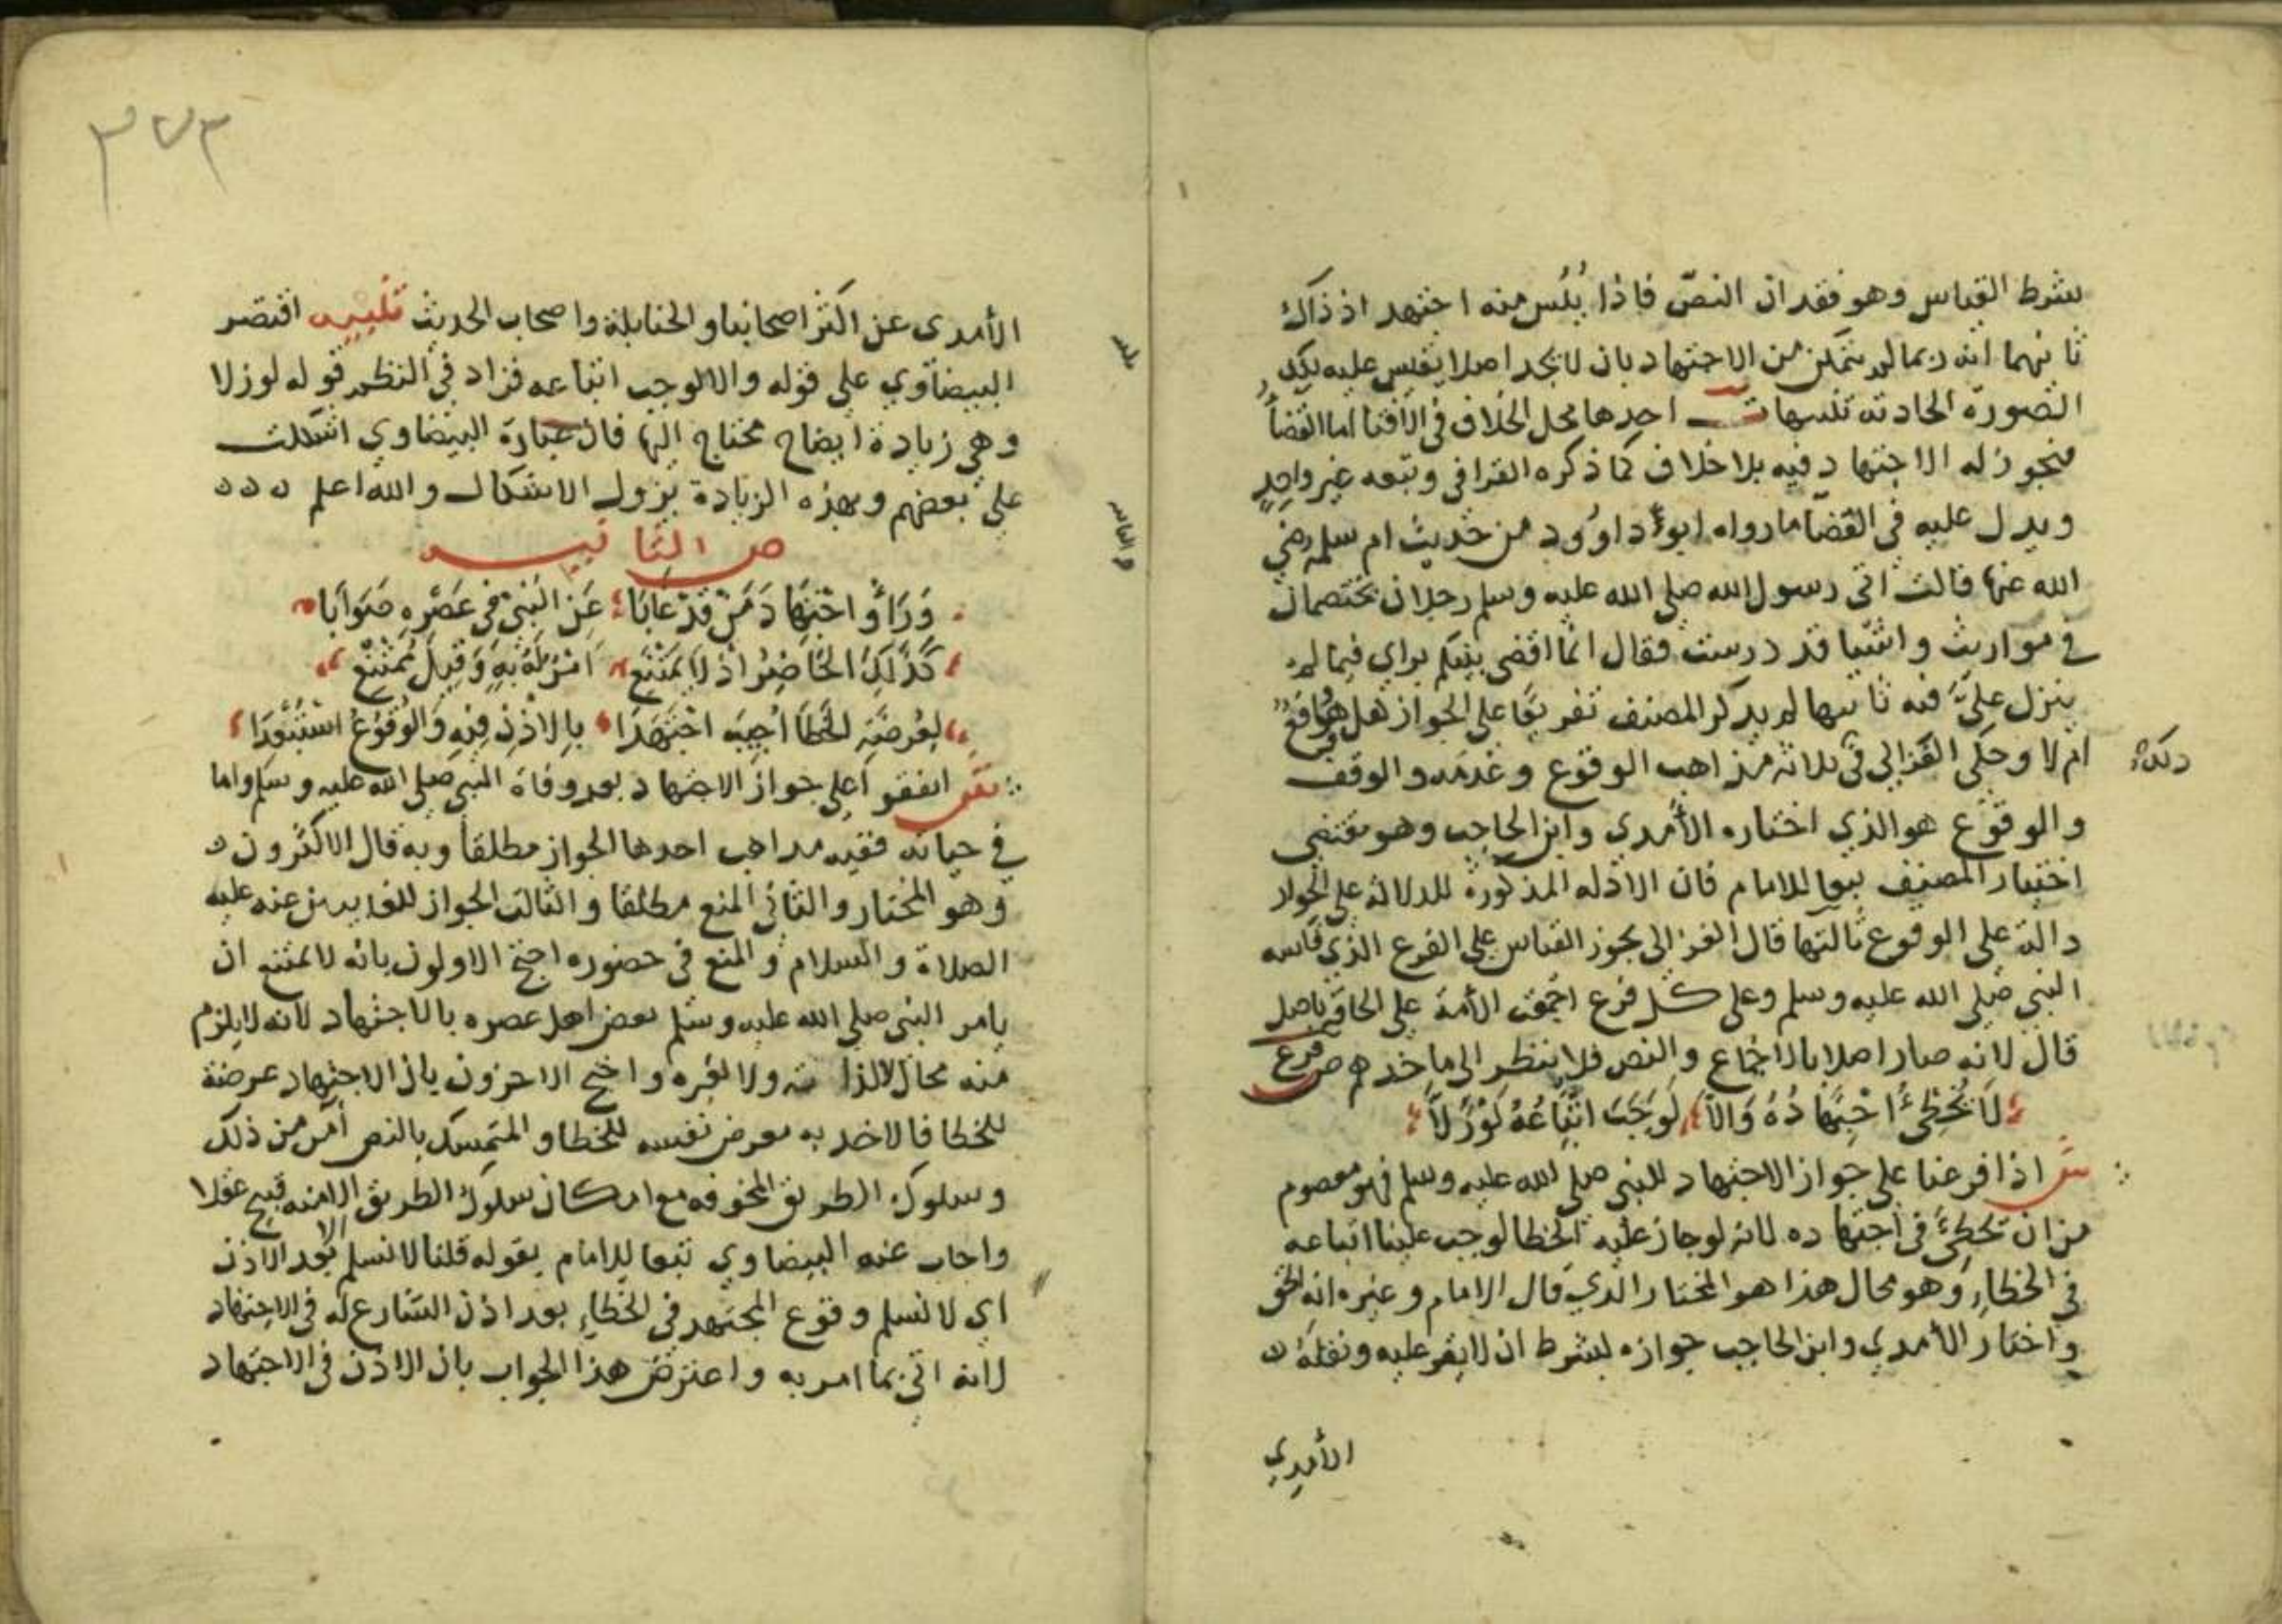 بشرط القياس وهو فقدان النص فاذا يئس منه اجتهد اذ ذاك
ثانيهما انه ربما لم يتمكن من الاجتهاد بان لا يجد اصلا يقيس عليه تلك
الصورة الحادثة تنبيهات احدها محل الخلاف في الافتا اما القضاء
فيجوز له الاجتهاد فيه بلا خلاف كما ذكره القرافي وتبعه غير واحد
ويدل عليه في القضا ما رواه ابو داوود من حديث ام سلمه رضي
الله عنها قالت اتى رسول الله صلى الله عليه وسلم رجلان يختصمان
في مواريث واشيا قد درست فقال انما اقضي بينكم براي فيما لم
ينزل عليّ فيه ثانيها لم يذكر المصنف تفريعا على الجواز هل هو واقع
ام لا وحكى الغزالي في ثلاثة مذاهب الوقوع وعدمه والوقف
والوقوع هو الذي اختاره الأمدي وابن الحاجب وهو مقتضى
اختيار المصنف تبعا للامام فان الادله المذكورة للدلالة على الجواز
دالة على الوقوع ثالثها قال الغزالي يجوز القياس على الفرع الذي قاسه
النبي صلى الله عليه وسلم وعلى كل فرع اجمعت الأمة على الحاقه باصل
قال لانه صار اصلا بالاجماع والنص فلا ينظر الى ماخذهم ص فرع
لَا يُخْطِئُ اجْتِهَادُهُ وَالاَّ لَوَجَبَ اتِّبَاعُهُ لَوْ زَلاَّ
ش اذا فرعنا على جواز الاجتهاد للنبي صلى الله عليه وسلم فهو معصوم
من ان يخطئ في اجتهاده لانه لو جاز عليه الخطا لوجب علينا اتباعه
في الخطاء وهو محال هذا هو المختار الذي قال الامام وغيره انه الحق
واختار الأمدي وابن الحاجب جوازه لشرط ان لا يقر عليه ونقله
الأمدي
٣٧٣
الأمدى عن اكثر اصحابنا والحنابلة واصحاب الحديث تنبيه اقتصر
البيضاوي على قوله والا لوجب اتباعه فزاد في النظم قوله لو زلا
وهي زيادة ايضاح محتاج اليها فان عبارة البيضاوي اشكلت
على بعضهم وبهذه الزيادة يزول الاشكال والله اعلم
ص الثانيه
وَرَأَوُا اجْتِهَادَ مَنْ قَدْ غَابَا عَنِ النَّبِيْ فِي عَصْرِهِ صَوَابَا
كَذَلِكَ الحَاضِرُ اذْ لَا يَمْتَنِعْ امْرٌ لَهُ بِهِ وَقِيلَ يَمْتَنِعْ
لِعُرْضَةِ الخَطَا اُجِيبَ اجْتَهَدَا بِالاِذْنِ فِيهِ وَالوُقُوعُ اسْتُبْعِدَا
ش اتفقوا على جواز الاجتهاد بعد وفاة النبي صلى الله عليه وسلم واما
في حياته ففيه مذاهب احدها الجواز مطلقا وبه قال الاكثرون
وهو المختار والثاني المنع مطلقا والثالث الجواز للغايبين عنه عليه
الصلاة والسلام والمنع في حضوره احتج الاولون بانه لا يمتنع ان
يامر النبي صلى الله عليه وسلم بعض اهل عصره بالاجتهاد لانه لا يلزم
منه محال لا لذاته ولا لغيره واحتج الاخرون بان الاجتهاد عرضة
للخطا فالاخد به معرض نفسه للخطا والمتمسك بالنص أمن من ذلك
وسلوك الطريق المخوفه مع امكان سلوك الطريق الامنه قبيح عقلا
واجاب عنه البيضاوي تبعا للامام بقوله قلنا لا نسلم بعد الاذن
اي لا نسلم وقوع المجتهد في الخطاء بعد اذن الشارع له في الاجتهاد
لانه اتى بما امر به واعترض هذا الجواب بان الاذن في الاجتهاد